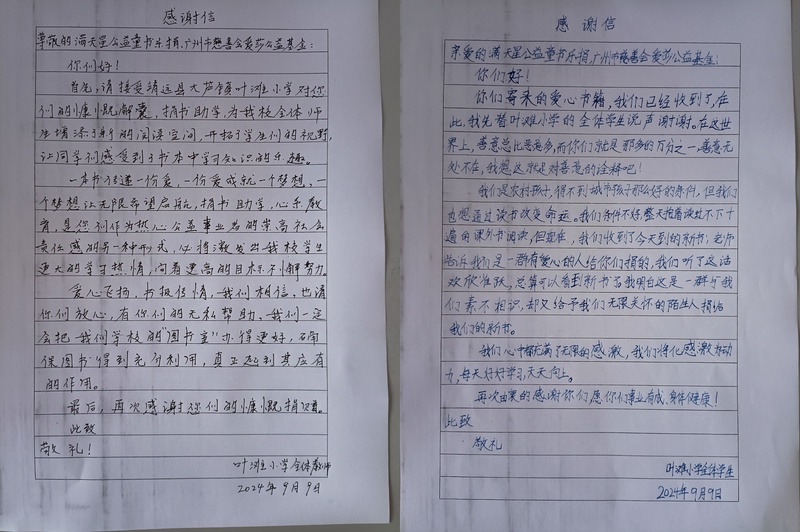 感谢信
尊敬的满天星公益童书乐捐、广州市慈善会爱莎公益基金:
你们好!
首先,请接受靖远县大芦镇叶滩小学对你
们的慷慨解囊,捐书助学,为我校全体师
生增添了新的阅读空间,开拓了学生们的视野,
让同学们感受到了书本中学习知识的乐趣。
一本书传递一份爱,一份爱成就一个梦想,一
个梦想让无限希望启航,捐书助学,心系教
育,是你们作为热心公益事业者的崇高社会
责任感的另一种形式,必将激发出我校学生
更大的学习热情,向着更高的目标不懈努力。
爱心飞扬,书报传情,我们相信,也请
你们放心,有你们的无私帮助,我们一定
会把我们学校的"图书室"办得更好,确
保图书"得到充分利用,真正起到其应有
的作用。
最后,再次感谢您们的慷慨捐赠。
此致
敬礼!
叶滩小学全体教师
2024年9月9日
感谢信
亲爱的满天星公益童书乐捐、广州市慈善会爱莎公益基金:
你们好!
你们寄来的爱心书籍,我们已经收到了,在
此,我先替叶滩小学的全体学生说声谢谢。在这世
界上,善意总比恶意多,而你们就是那多的万分之一,善意无
处不在,我想这就是对善意的诠释吧!
我们是农村孩子,得不到城市孩子那么好的条件,但我们
也想通过读书改变命运。我们条件不好,整天抱着读过不下十
遍的课外书阅读,但现在,我们收到了今天到的新书,老师
告诉我们是一群有爱心的人给你们捐的,我们听了这话
欢欣雀跃,总算可以看到新书了,我明白这是一群与我
们素不相识,却又给予我们无限关怀的陌生人捐给
我们的新书。
我们心中都充满了无限的感激,我们将化感激为动
力,每天好好学习,天天向上。
再次由衷的感谢你们,愿你们事业有成、身体健康!
此致
敬礼
叶滩小学全体学生
2024年9月9日